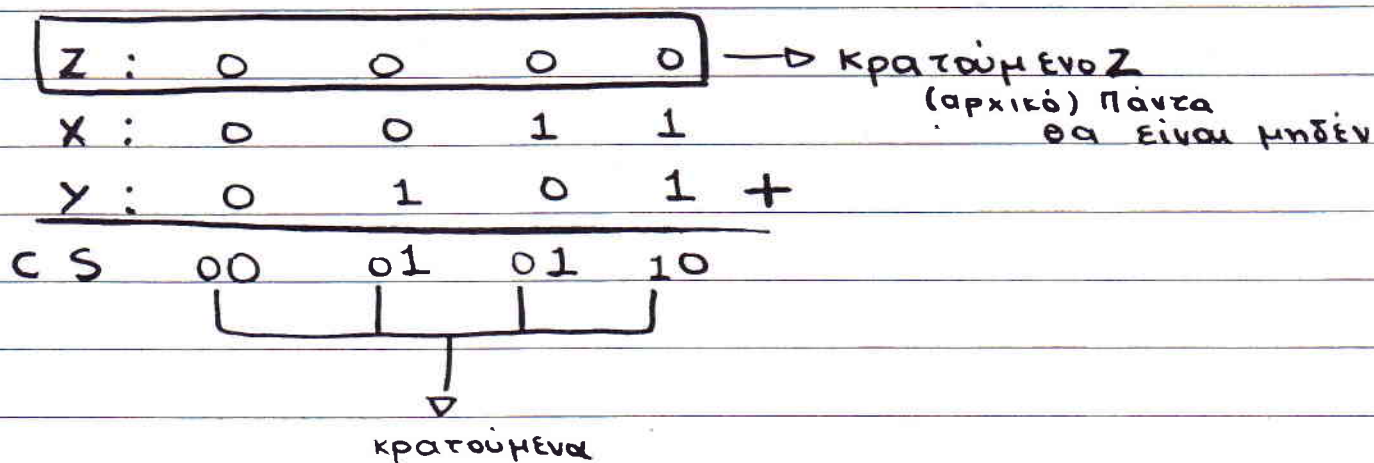 Z : 0 0 0 0 → κρατούμενο Z
(αρχικό) Πάντα
θα είναι μηδέν
X : 0 0 1 1
Y : 0 1 0 1 +
C S 00 01 01 10
κρατούμενα